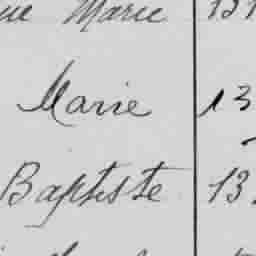 ue Marie 131
Marie 13
Baptiste 13